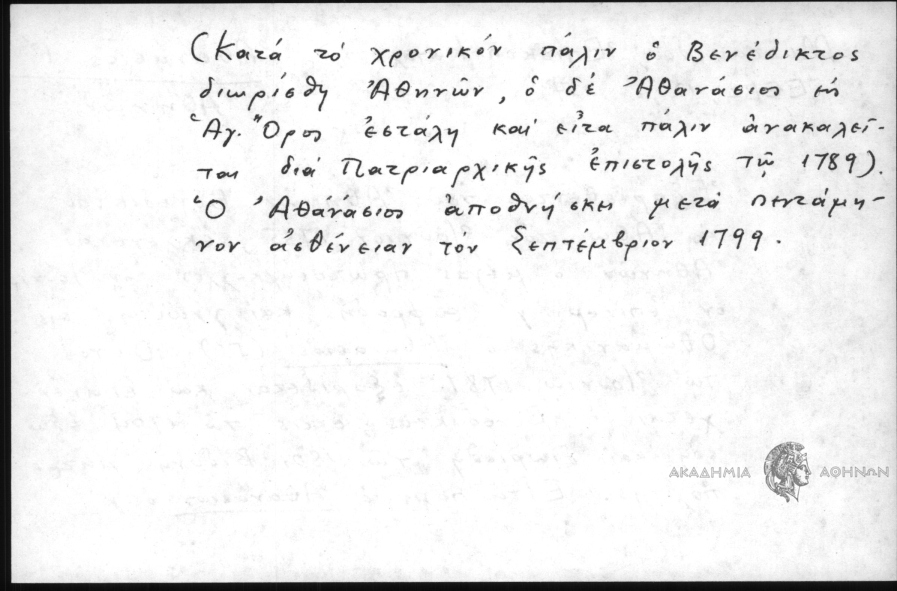 (Κατά τό χρονικόν πάλιν ὁ Βενέδικτος
διωρίσθη Ἀθηνῶν, ὁ δέ Ἀθανάσιος εἰς
Ἁγ. Ὄρος ἐστάλη καί εἶτα πάλιν ἀνακαλεῖ-
ται διά Πατριαρχικῆς ἐπιστολῆς τῷ 1789).
Ὁ Ἀθανάσιος ἀποθνήσκει μετά πεντάμη-
νον ἀσθένειαν τον Σεπτέμβριον 1799.
ΑΚΑΔΗΜΙΑ ΑΘΗΝΩΝ